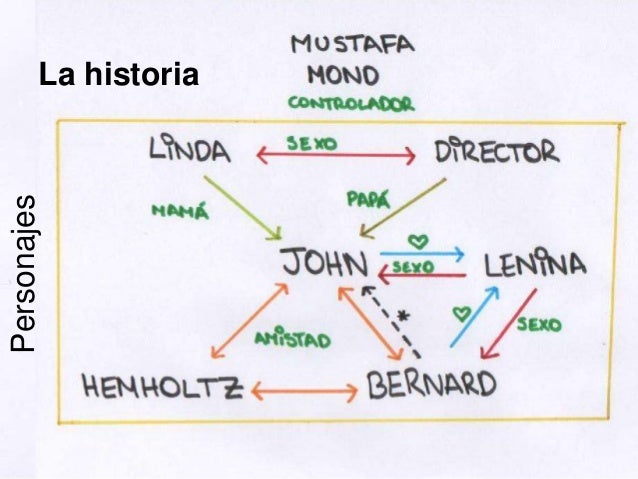 La historia
Personajes
MUSTAFA
MOND
CONTROLADOR
LINDA
SEXO
DIRECTOR
MAMÁ
PAPÁ
JOHN
SEXO
LENINA
*
SEXO
AMISTAD
HEMHOLTZ
BERNARD